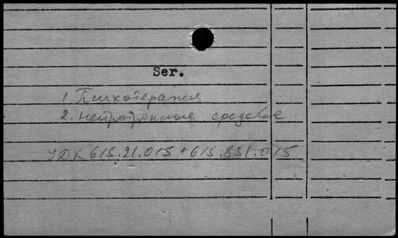 Ser.
1. Психотерапия
2. Нейротропные средства
УДК 615.21.015+615.851.015